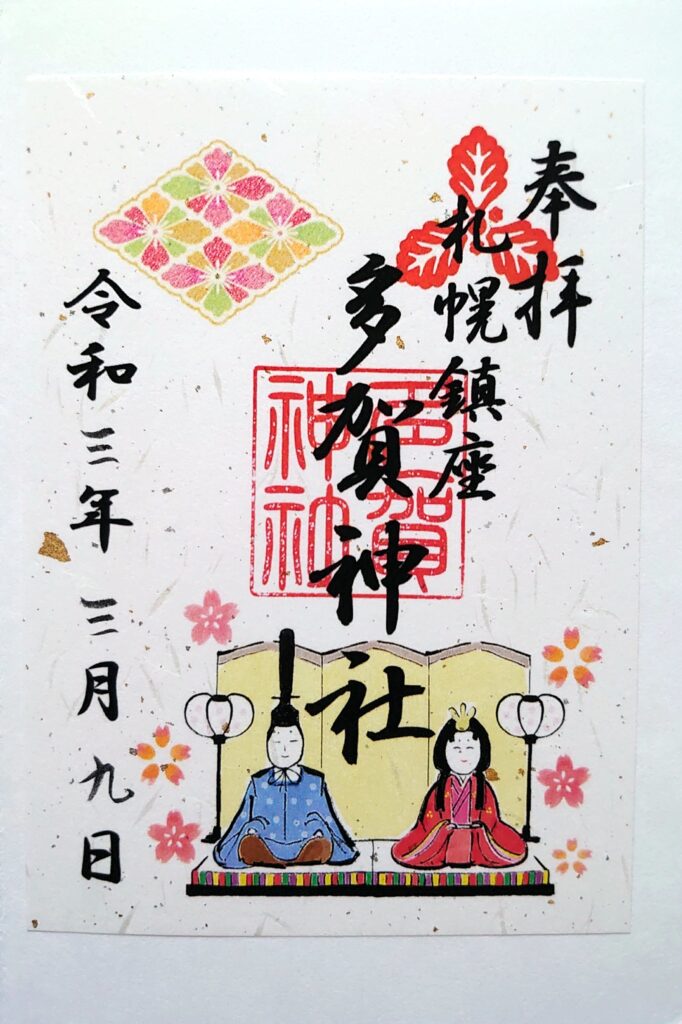 奉拝
札幌鎮座
多賀神社
多賀
神社
令和三年三月九日